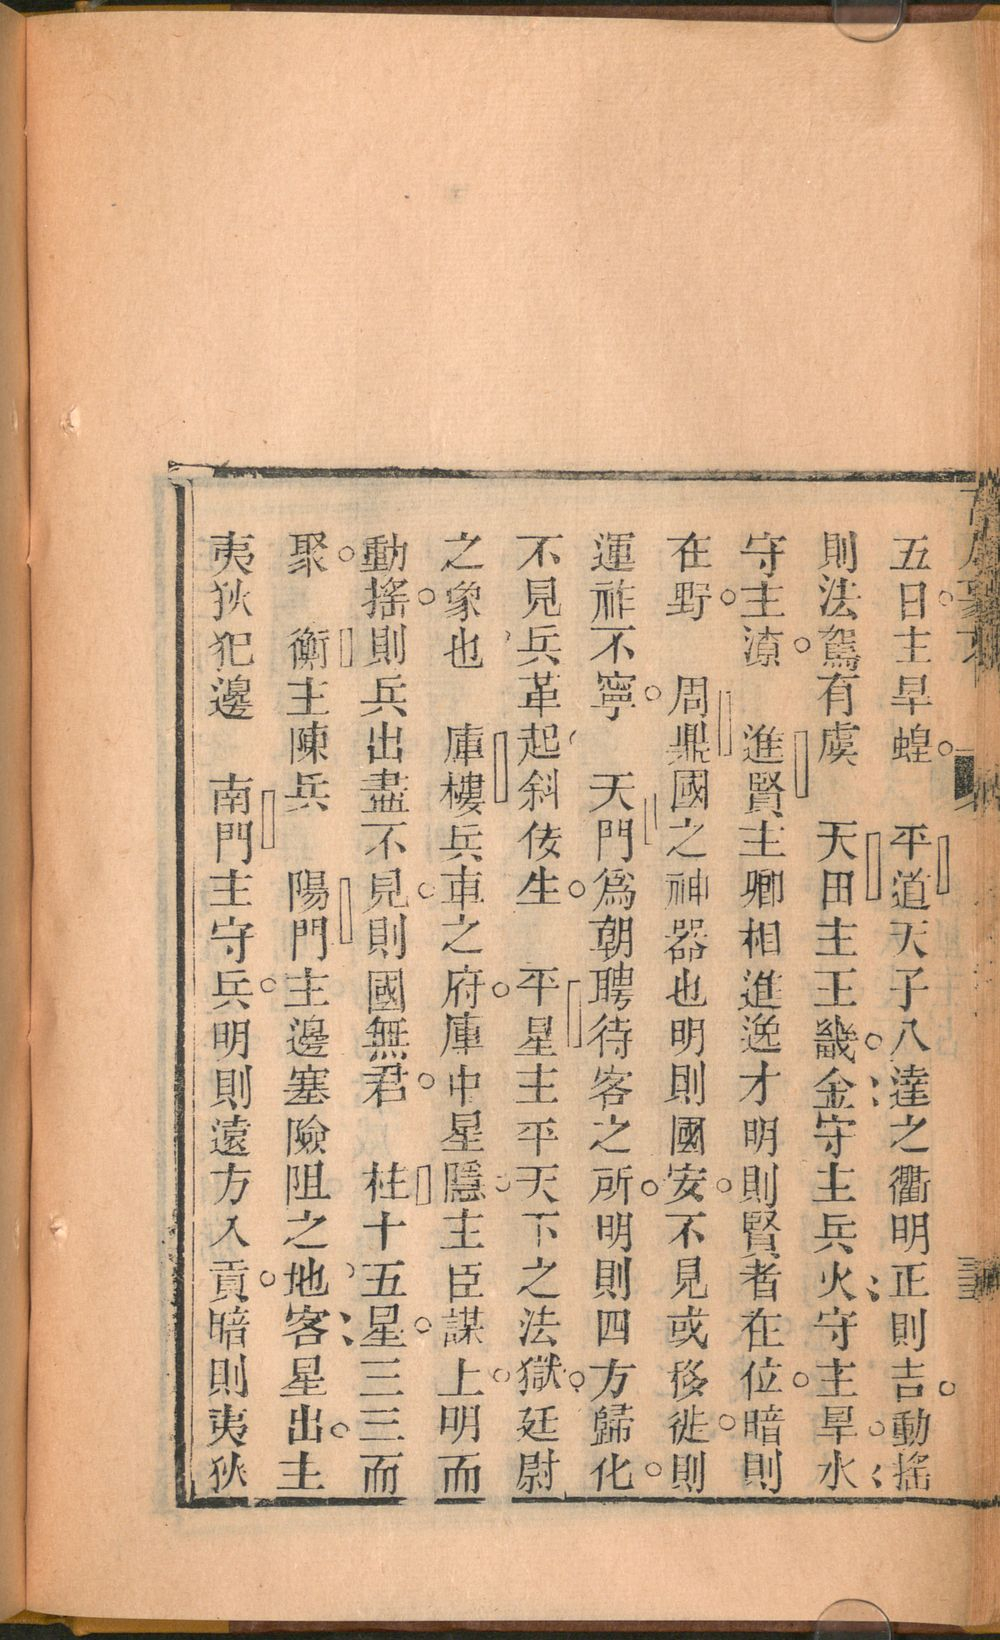 五日主旱蝗　平道天子八達之衢明正則吉動搖
則法駕有虞　天田主王畿金守主兵火守主旱水
守主潦　進賢主卿相進逸才明則賢者在位暗則
在野　周鼎國之神器也明則國安不見或移徙則
運祚不寧　天門爲朝聘待客之所明則四方歸化
不見兵革起斜佞生　平星主平天下之法獄廷尉
之象也　庫樓兵車之府庫中星隱主臣謀上明而
動搖則兵出盡不見則國無君　柱十五星三三而
聚　衡主陳兵　陽門主邊塞險阻之地客星出主
夷狄犯邊　南門主守兵明則遠方入貢暗則夷狄